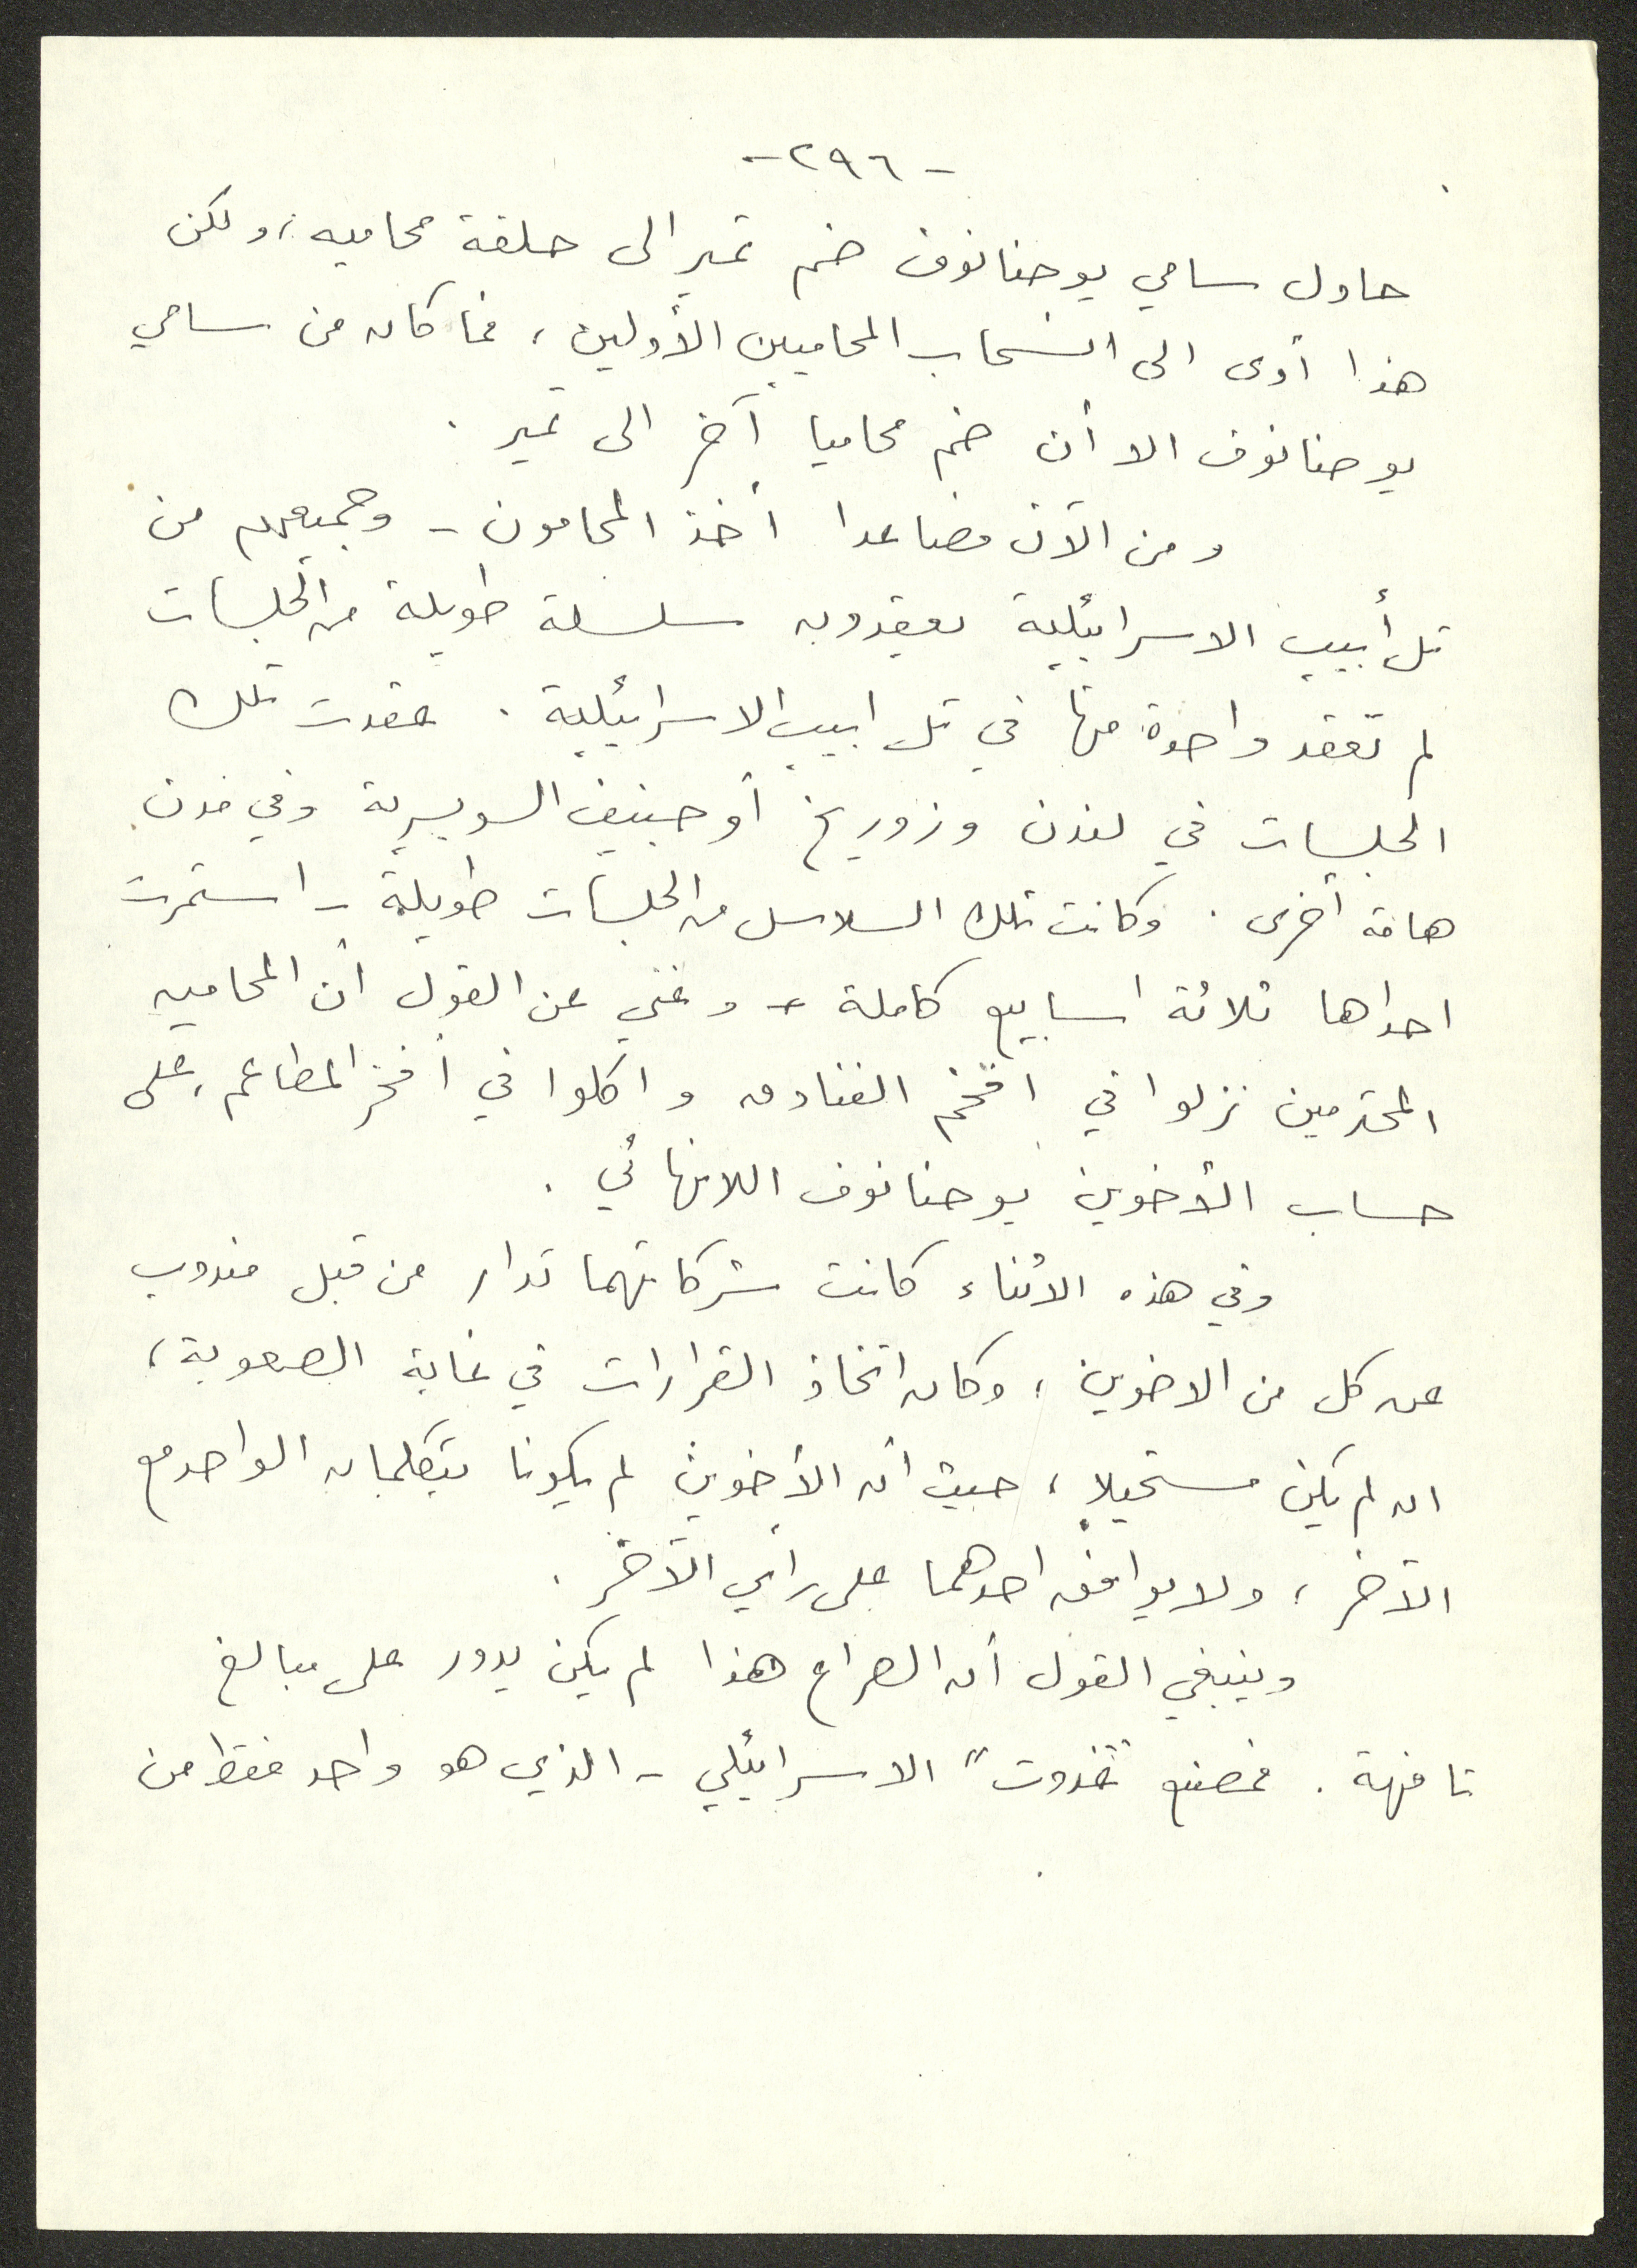 -٢٩٦-
حاول سامي يوحنانوف ضم تمير الى حلقة محاميه، ولكن
هذا أدى الى انسحاب المحاميين الأولين، فما كان من سامي
يوحنانوف الا أن ضم محاميا آخر الى تمير.
ومن الآن فصاعدا أخذ المحامون - وجميعهم من
تل أبيب الاسرائيلية يعقدون سلسلة طويلة من الجلسات
لم تعقد واحدة منها في تل ابيب الاسرائيلية. عقدت تلك
الجلسات في لندن وزوريخ أو جنيف السويسرية وفي مدن
هامة أخرى. وكانت تلك السلاسل من الجلسات طويلة - استمرت
احداها ثلاثة اسابيع كاملة - وغني عن القول أن المحامين
المحترمين نزلوا في افخم الفنادق واكلوا في أفخر المطاعم، على
حساب الأخوين يوحنانوف اللانهائي.
وفي هذه الاثناء كانت شركاتهما تدار من قبل مندوب
عن كل من الاخوين، وكان اتخاذ القرارات في غاية الصعوبة،
ان لم يكن مستحيلا، حيث أن الأخوين لم يكونا يتكلمان الواحد مع
الآخر، ولا يوافق احدهما على رأي الآخر.
وينبغي القول أن الصراع هذا لم يكن يدور على مبالغ
تافهة. فمصنع "تخدوت" الاسرائيلي - الذي هو واحد فقط من